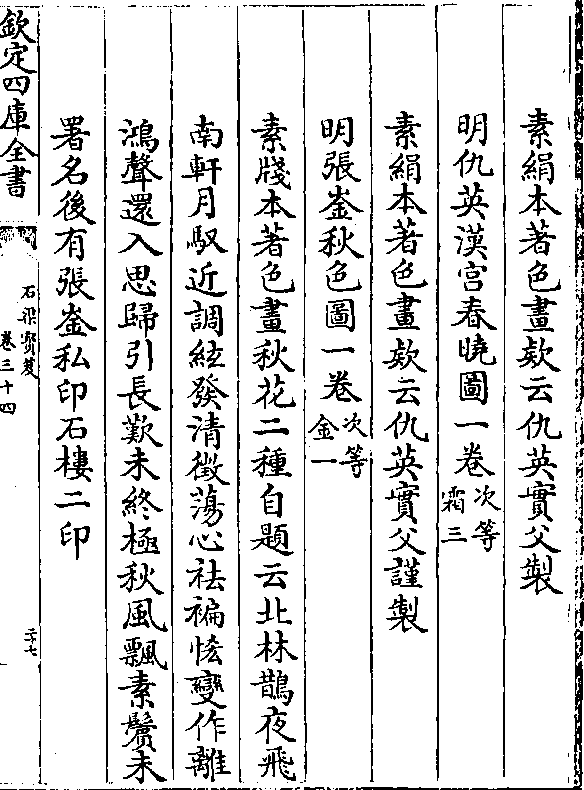 素絹本著色畫欵云仇英實父製
明仇英漢宮春曉圖一卷次等霜三
素絹本著色畫欵云仇英實父謹製
明張崟秋色圖一卷次等金一
素牋本著色畫秋花二種自題云北林鵲夜飛
南軒月馭近調絃發清徵蕩心袪褊恡變作離
鴻聲還入思歸引長歎未終極秋風飄素鬢未
署名後有張崟私印石樓二印
欽定四庫全書
石渠寳笈
卷三十四
二十七